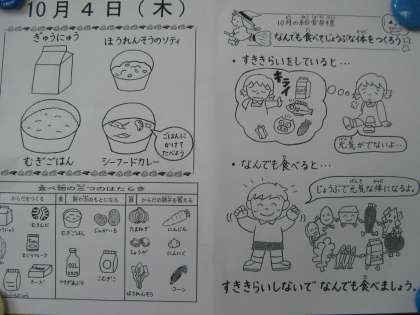 10月4日(木)
ぎゅうにゅう
ほうれんそうのソティ
むぎごはん
シーフードカレー
ごはんに
かけて
たべよう
食べ物の三つのはたらき
からだをつくる
熱や力のもとになる
からだの調子を整える
むきえび
むぎごはん
じゃがいも
たまねぎ
にんじん
しょうが
にんにく
チーズ
サラダあぶら
こむぎこ
ほうれんそう
コーン
10月の給食目標
なんでも食べてじょうぶな体をつくろう
・すききらいをしていると…
キライ
元気がでないよ…
・なんでも食べると…
じょうぶで元気な体になるよ。
すききらいしないで なんでも食べましょう。